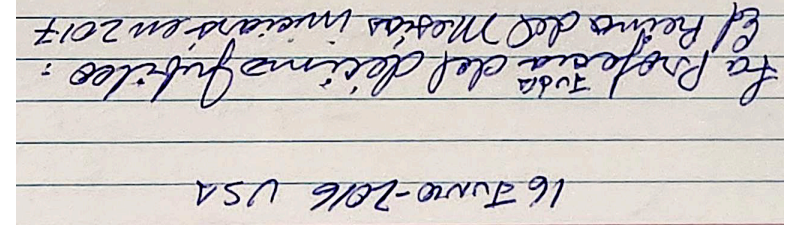 16 Junio-2016 USA
JUDA
La Profecía del décimo Jubileo:
El Reino del Mesías iniciará en 2017